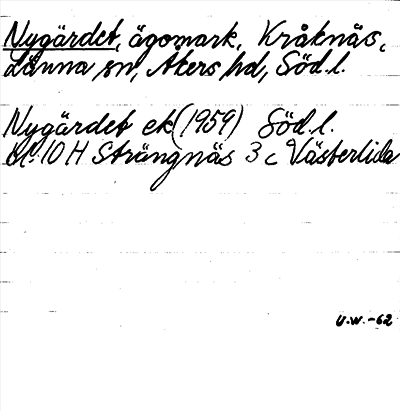 Nygärdet, ägomark, Kråknäs,
Länna sn, Åkers hd, Söd.l.
Nygärdet ek (1959) Söd.l.
bl. 10 H Strängnäs 3 c Västerlida
U.W. -62